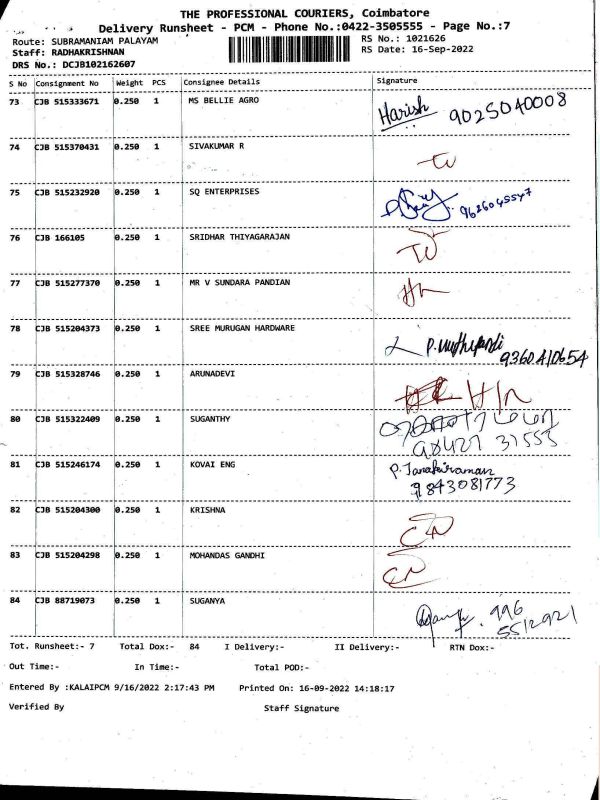 THE PROFESSIONAL COURIERS, Coimbatore
Delivery Runsheet - PCM - Phone No.:0422-3505555 - Page No.:7
Route: SUBRAMANIAM PALAYAM RS No.: 1021626
Staff: RADHAKRISHNAN RS Date: 16-Sep-2022
DRS No.: DCJB102162607
S No Consignment No Weight PCS Consignee Details Signature
73 CJB 515333671 0.250 1 MS BELLIE AGRO Harish 9025040008
74 CJB 515370431 0.250 1 SIVAKUMAR R
75 CJB 515232920 0.250 1 SQ ENTERPRISES 9626045547
76 CJB 166105 0.250 1 SRIDHAR THIYAGARAJAN
77 CJB 515277370 0.250 1 MR V SUNDARA PANDIAN
78 CJB 515204373 0.250 1 SREE MURUGAN HARDWARE
9360410654
79 CJB 515328746 0.250 1 ARUNADEVI
80 CJB 515322409 0.250 1 SUGANTHY
98427 31553
81 CJB 515246174 0.250 1 KOVAI ENG P. Janakiraman
9843081773
82 CJB 515204300 0.250 1 KRISHNA
83 CJB 515204298 0.250 1 MOHANDAS GANDHI
84 CJB 88719073 0.250 1 SUGANYA 996
5512921
Tot. Runsheet:- 7 Total Dox:- 84 I Delivery:- II Delivery:- RTN Dox:-
Out Time:- In Time:- Total POD:-
Entered By :KALAIPCM 9/16/2022 2:17:43 PM Printed On: 16-09-2022 14:18:17
Verified By Staff Signature